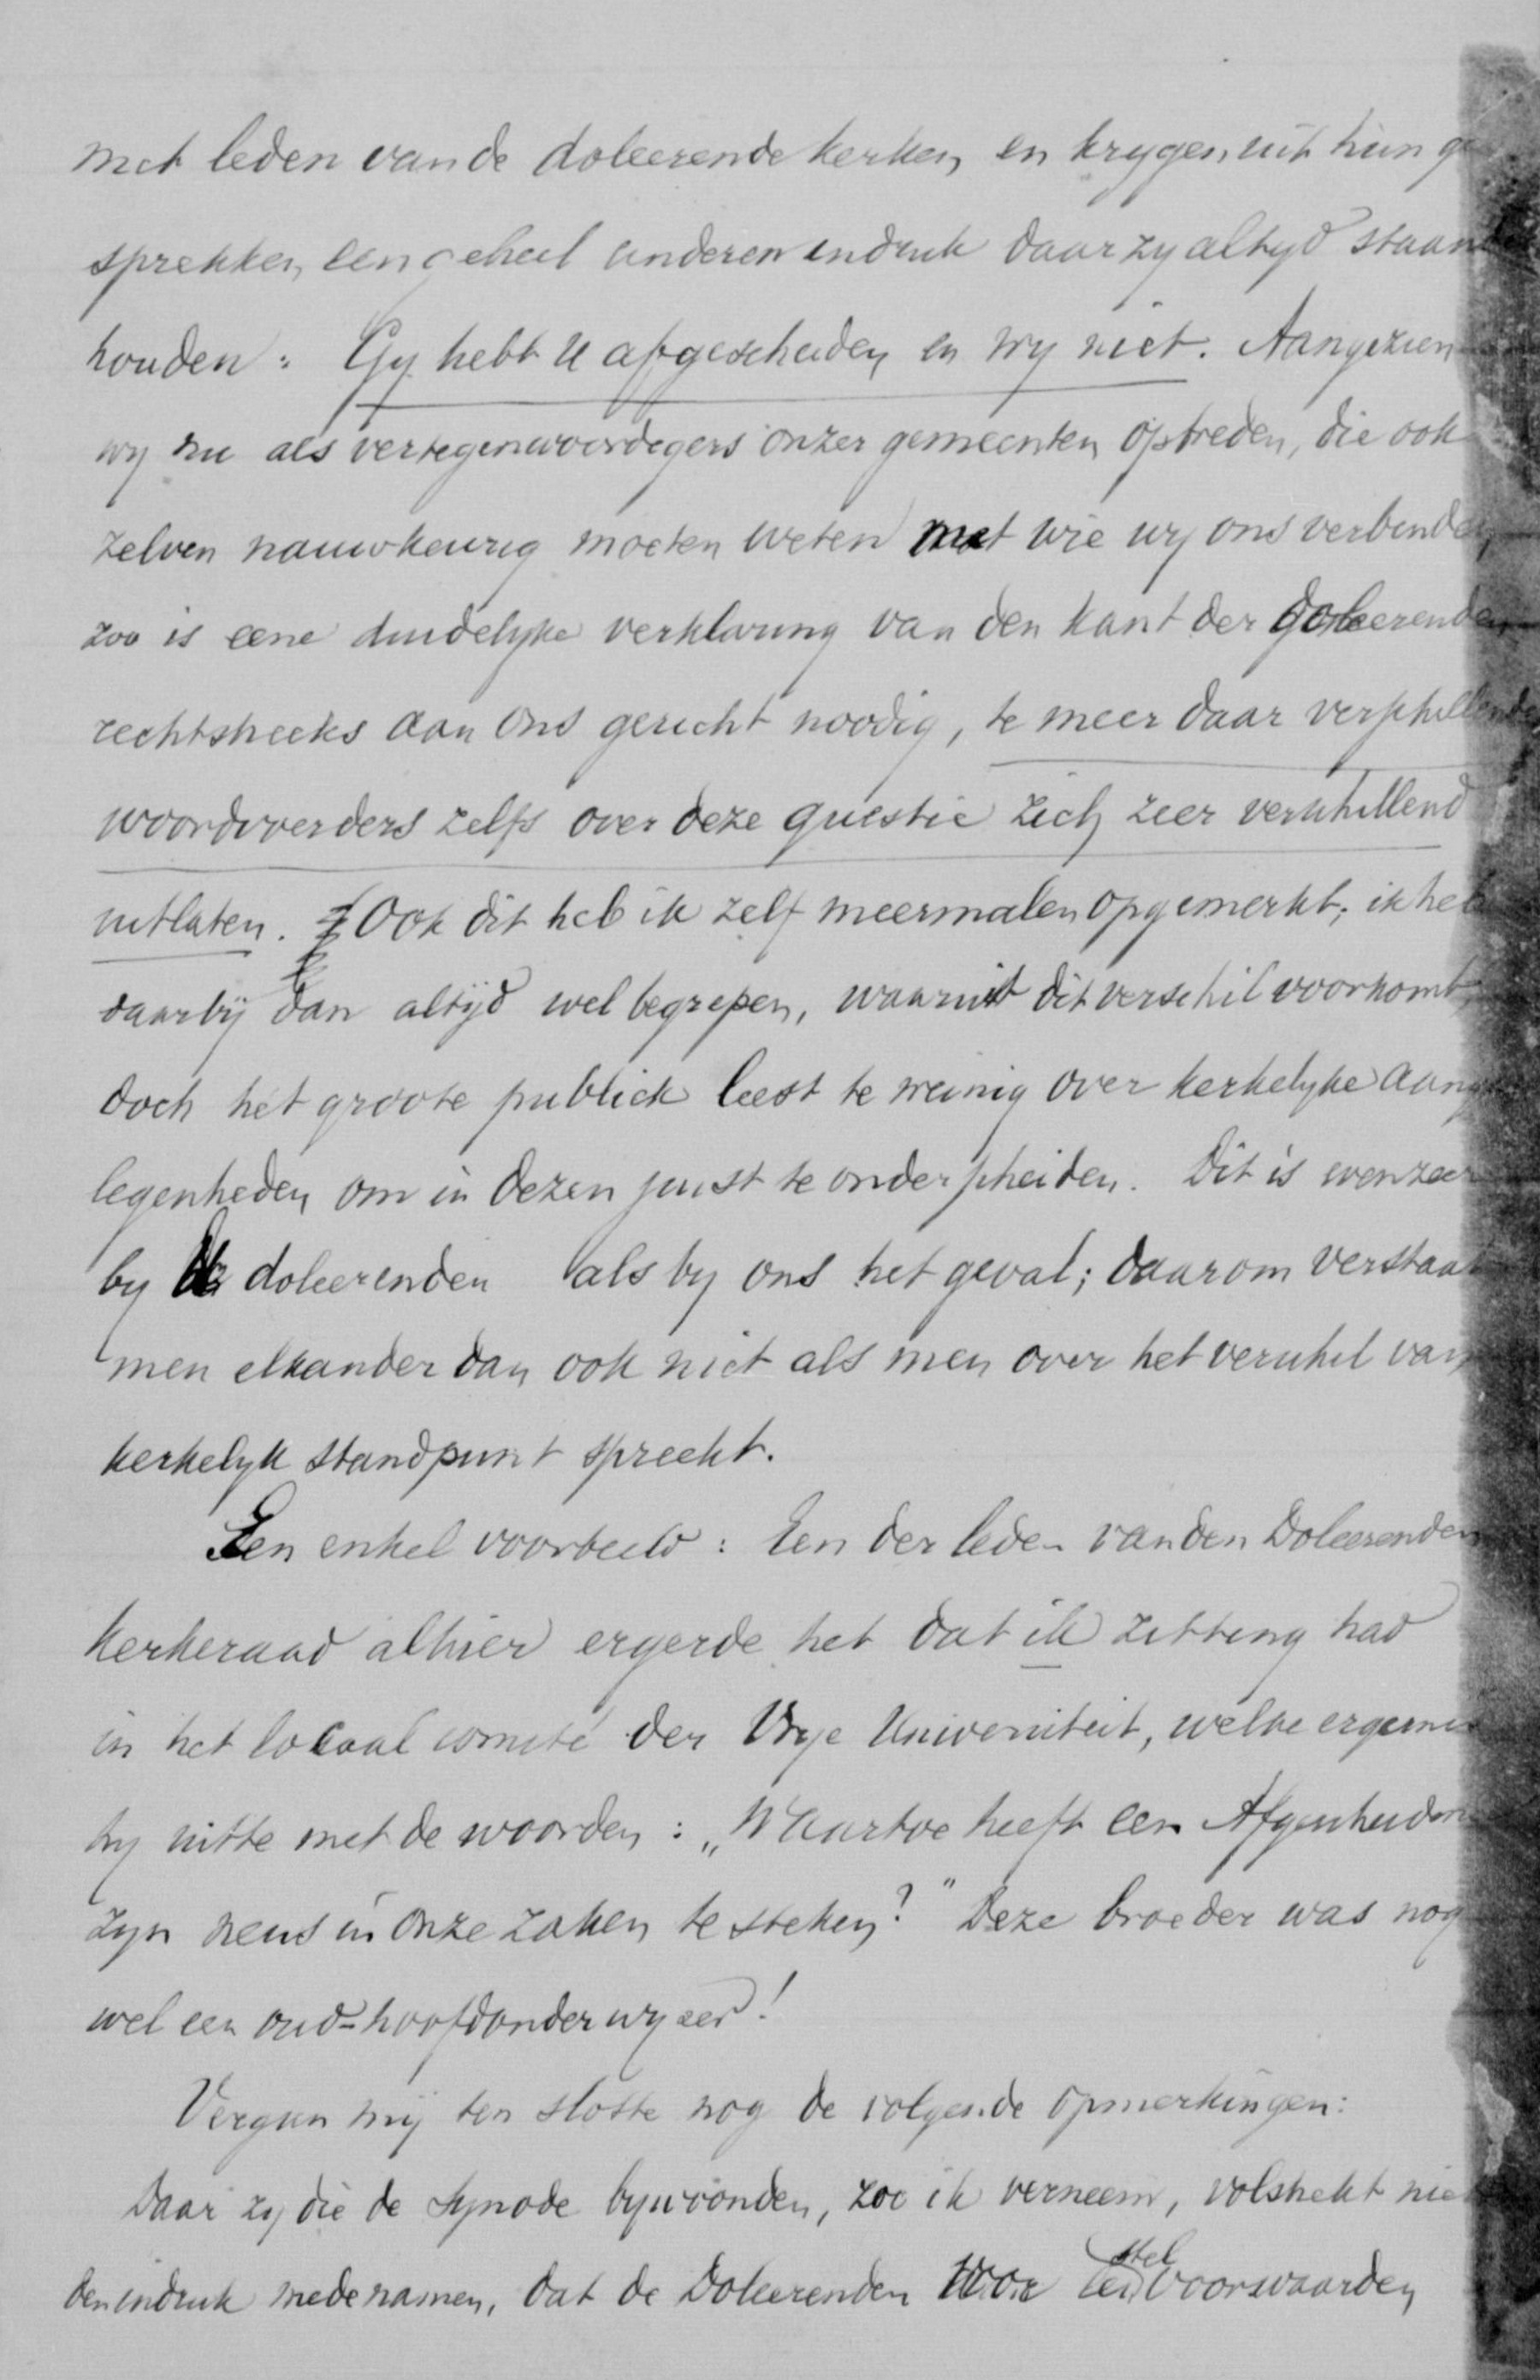 met leden van de doleerende kerken en krygen uit hun ge
sprekken een geheel anderen indruk daar zy altyd staande
houden: Gy hebt U afgescheiden en wy niet. Aangezien
wy nu als vertegenwoordigers onzer gemeenten optreden, die ook
zelven nauwkeurig moeten weten met wie wy ons verbinden,
zoo is eene duidelyke verklaring van den kant der doleerenden
rechtstreeks aan ons gericht noodig, te meer daar verschillende
woordvoerders zelfs over deze questie zich zeer verschillend
uitlaten. Ook dit heb ik zelf meermalen opgemerkt; ik heb
daarbij dan altyd wel begrepen, waaruit dit verschil voorkomt,
doch het groote publiek leest te weinig over kerkelyke aang
legenheden om in dezen juist te onderscheiden. Dit is evenzeer
by de doleerenden als by ons het geval; daarom verstaat
men elkander dan ook niet als men over het verschil van
kerkelyk standpunt spreekt.
Een enkel voorbeeld: Een der leden van den Doleerenden
kerkeraad alhier ergerde het dat ik zitting had
in het lokaal comité der Vrye Universiteit, welke ergernis
hy uitte met de woorden: „Waartoe heeft een Afgescheidene
zyn neus in onze zaken te steken?" Deze broeder was nog
wel een oud-hoofdonderwyzer!
Vergun mij ten slotte nog de volgende opmerkingen:
Daar zy die de Synode bywoonden, zoo ik verneem, volstrekt niet
den indruk medenamen, dat de Doleerenden voor stel voorwaarden